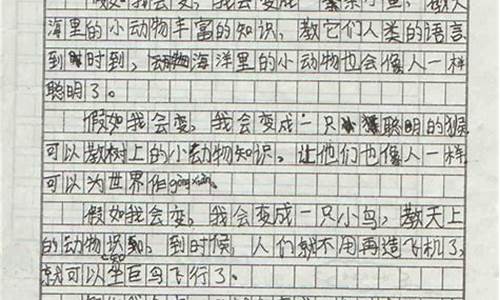 假如我会变，我会变成一条小鱼，教大
海里的小动物丰富的知识，教它们人类的语言
到时到，海洋里的小动物也会像人一样
聪明了。
假如我会变，我会变成一只聪明的猴
可以教树上的小动物知识，让他们也像人一样
可以为世界作gòng xiàn。
假如我会变，我会变成一只小鸟，教天上
的动物识知，到时候，人们就不用再造飞机了，
就可以坐巨鸟飞行了。